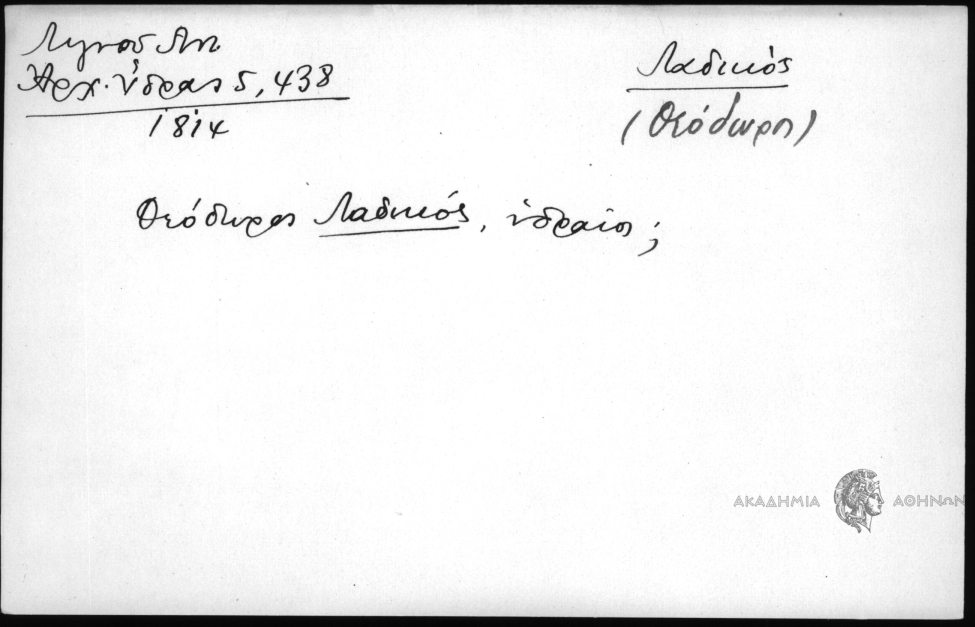 Λιγνού Αν.
Ἀρχ. Ὕδρας 5, 438
1814
Λαδικός
(Θεόδωρος)
Θεόδωρος Λαδικός, ὑδραῖος;
ΑΚΑΔΗΜΙΑ ΑΘΗΝΩΝ